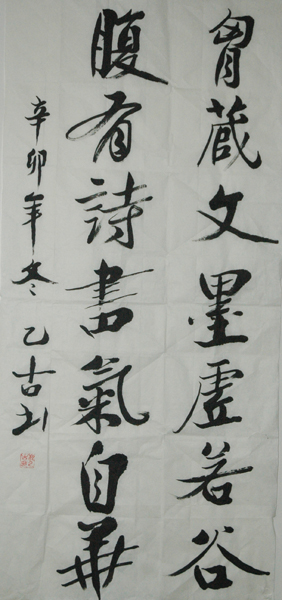 胷藏文墨虚若谷
腹有詩書氣自華
辛卯年冬乙古书